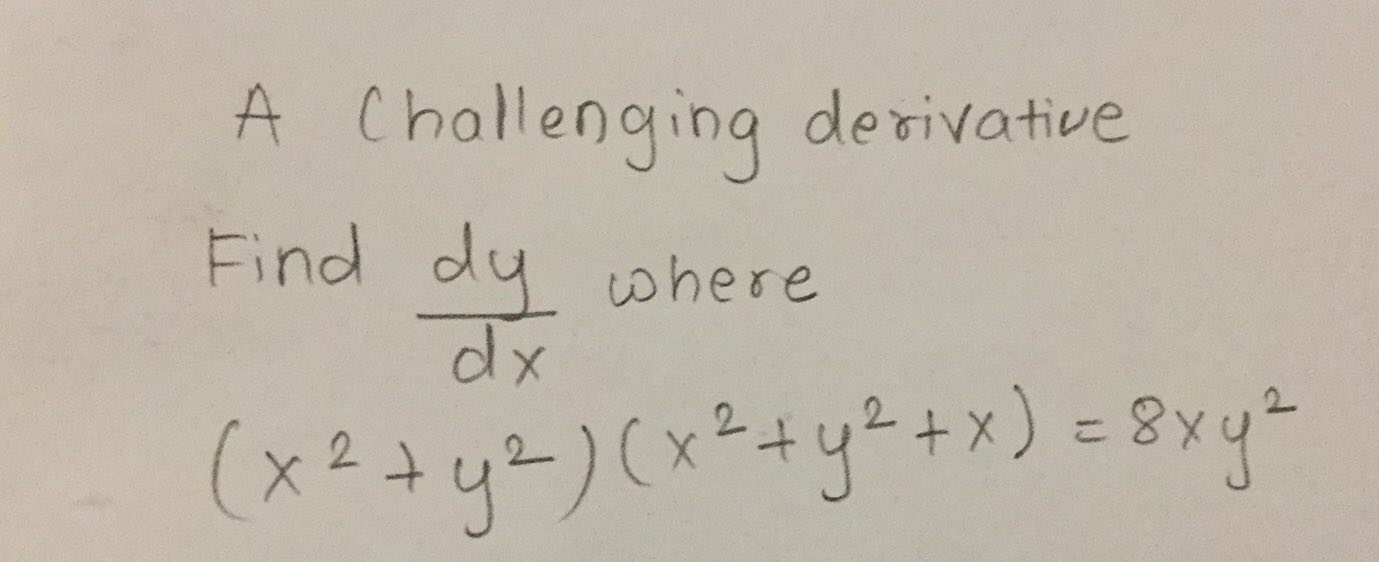 A Challenging derivative
Find dy/dx where
(x²+y²)(x²+y²+x) = 8xy²